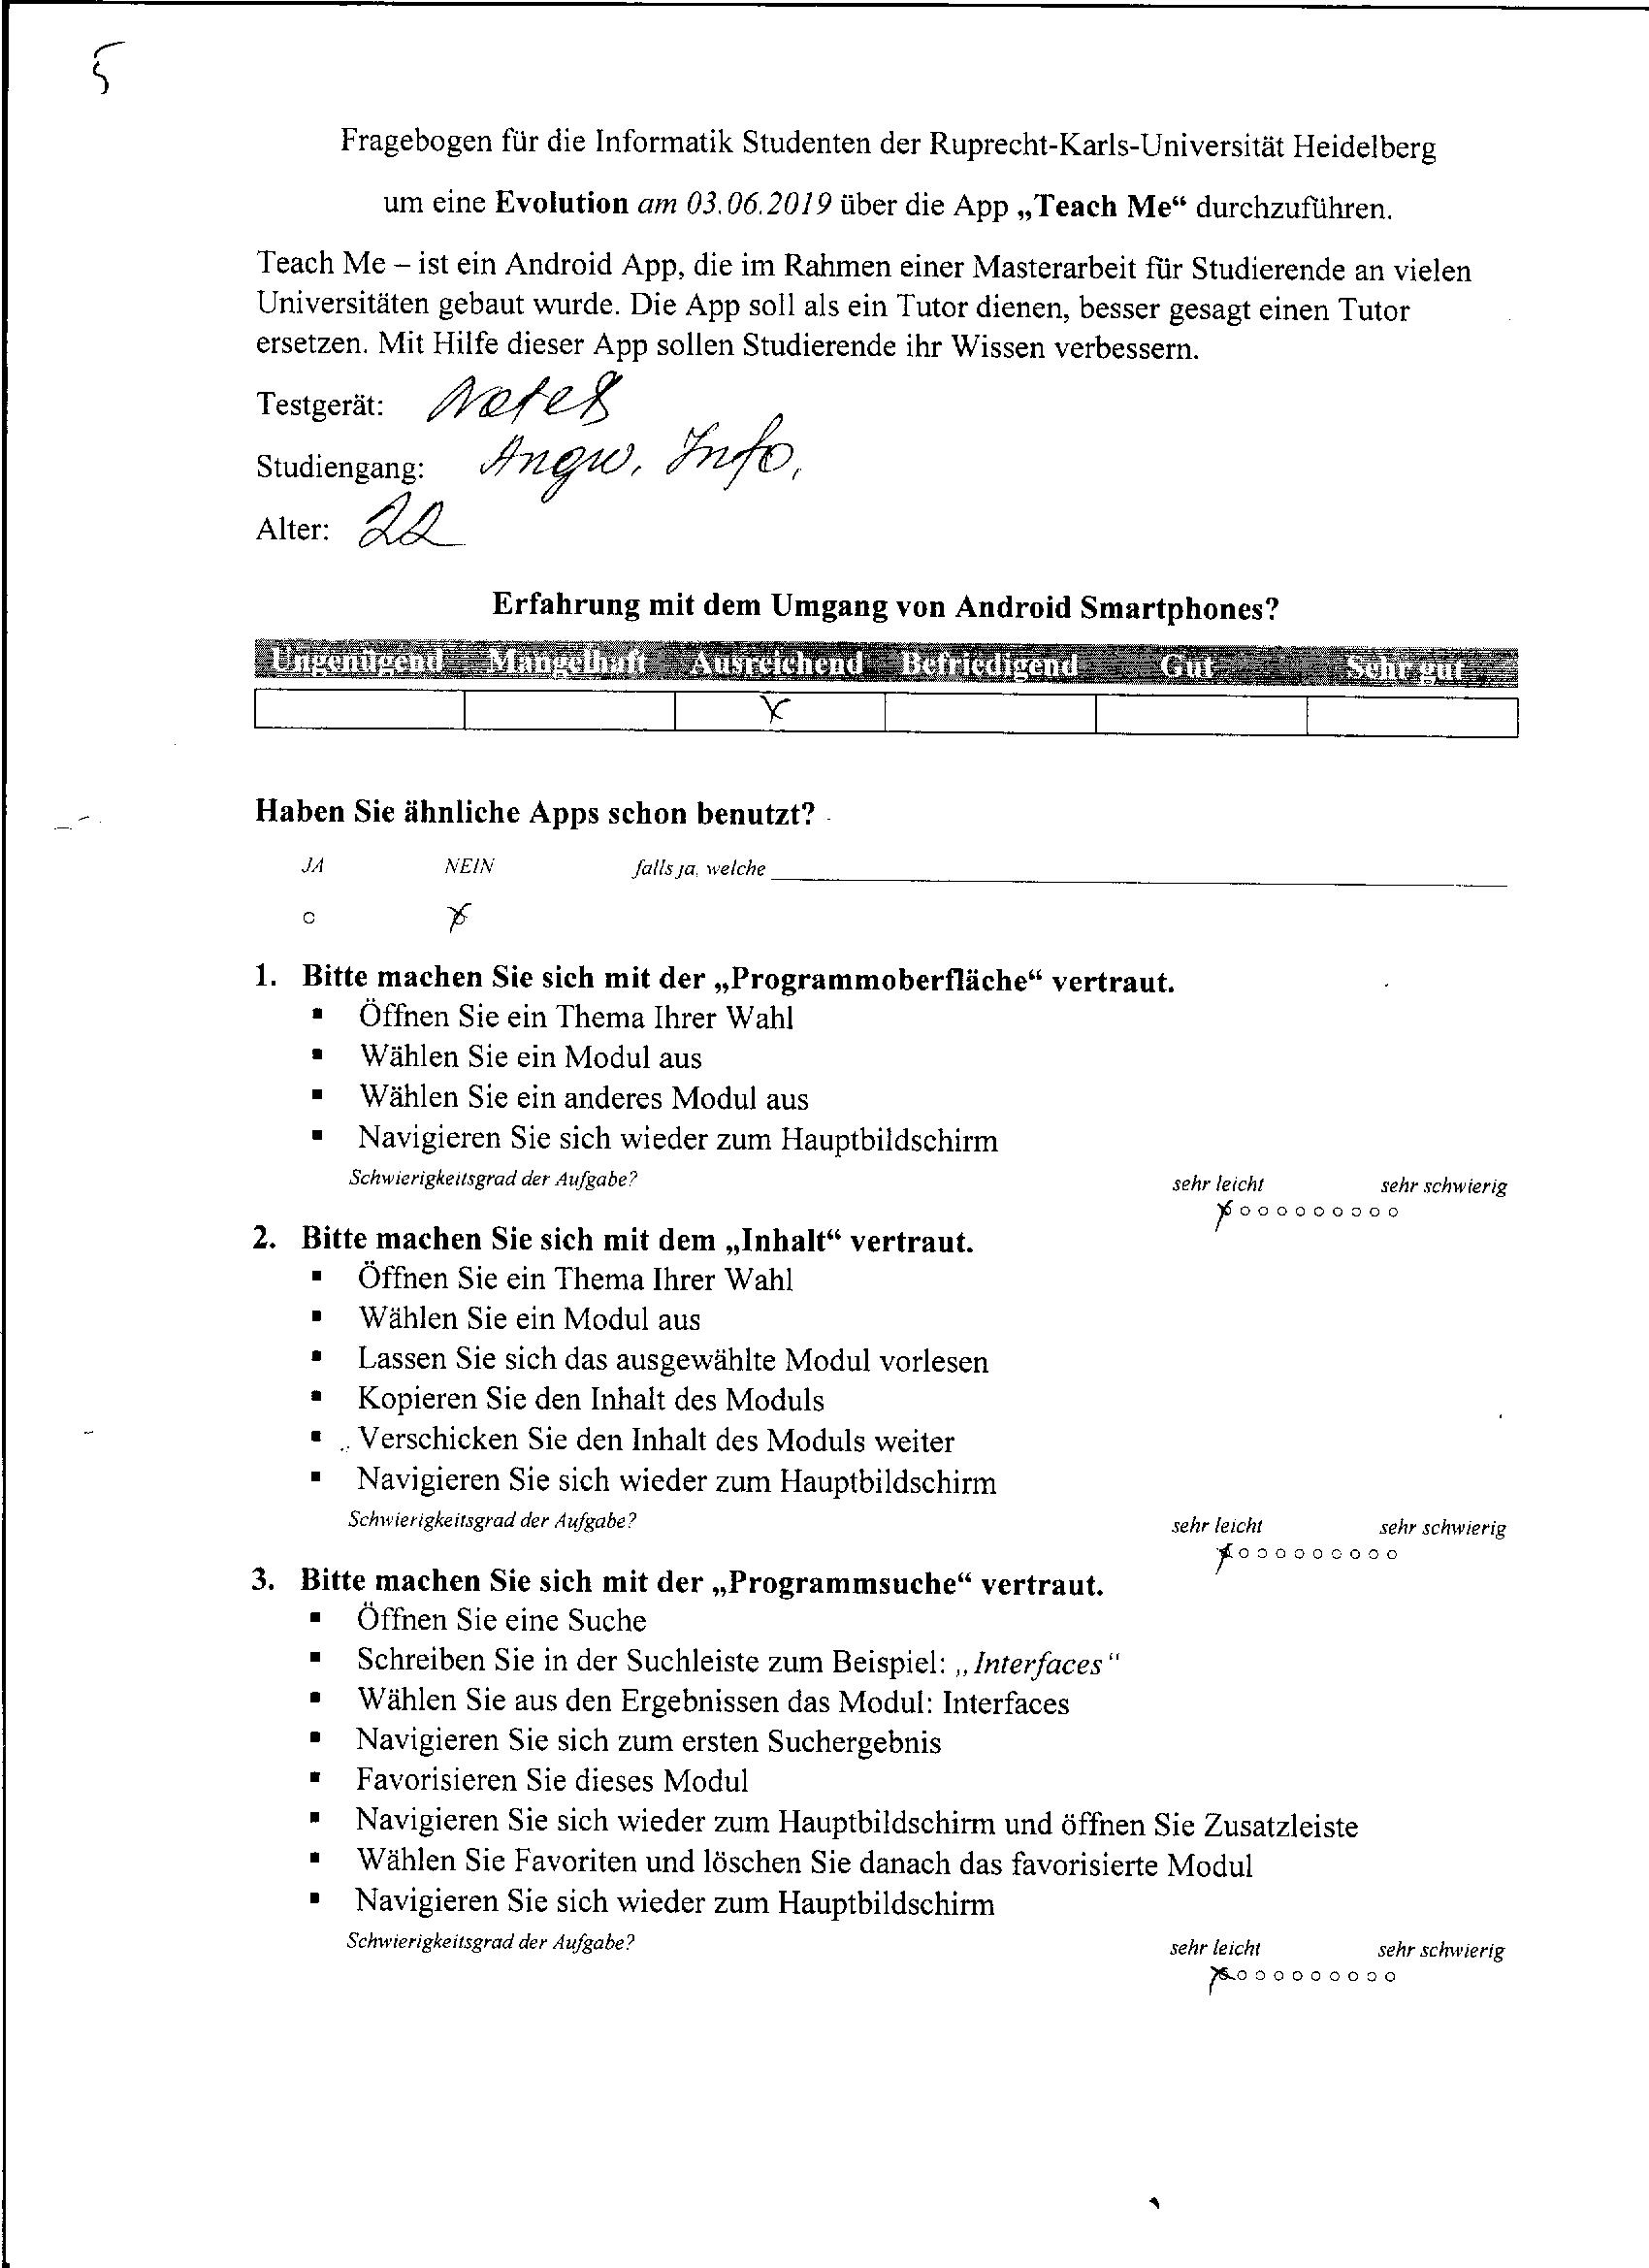 5
Fragebogen für die Informatik Studenten der Ruprecht-Karls-Universität Heidelberg
um eine Evolution am 03.06.2019 über die App „Teach Me“ durchzuführen.
Teach Me – ist ein Android App, die im Rahmen einer Masterarbeit für Studierende an vielen
Universitäten gebaut wurde. Die App soll als ein Tutor dienen, besser gesagt einen Tutor
ersetzen. Mit Hilfe dieser App sollen Studierende ihr Wissen verbessern.
Testgerät: Note8
Studiengang: Angw. Info.
Alter: 22
Erfahrung mit dem Umgang von Android Smartphones?
Ungenügend Mangelhaft Ausreichend Befriedigend Gut Sehr gut
x
Haben Sie ähnliche Apps schon benutzt?
JA NEIN falls ja, welche
o x
1. Bitte machen Sie sich mit der „Programmoberfläche“ vertraut.
▪ Öffnen Sie ein Thema Ihrer Wahl
▪ Wählen Sie ein Modul aus
▪ Wählen Sie ein anderes Modul aus
▪ Navigieren Sie sich wieder zum Hauptbildschirm
Schwierigkeitsgrad der Aufgabe? sehr leicht sehr schwierig
x o o o o o o o o o
2. Bitte machen Sie sich mit dem „Inhalt“ vertraut.
▪ Öffnen Sie ein Thema Ihrer Wahl
▪ Wählen Sie ein Modul aus
▪ Lassen Sie sich das ausgewählte Modul vorlesen
▪ Kopieren Sie den Inhalt des Moduls
▪ Verschicken Sie den Inhalt des Moduls weiter
▪ Navigieren Sie sich wieder zum Hauptbildschirm
Schwierigkeitsgrad der Aufgabe? sehr leicht sehr schwierig
x o o o o o o o o o
3. Bitte machen Sie sich mit der „Programmsuche“ vertraut.
▪ Öffnen Sie eine Suche
▪ Schreiben Sie in der Suchleiste zum Beispiel: „Interfaces“
▪ Wählen Sie aus den Ergebnissen das Modul: Interfaces
▪ Navigieren Sie sich zum ersten Suchergebnis
▪ Favorisieren Sie dieses Modul
▪ Navigieren Sie sich wieder zum Hauptbildschirm und öffnen Sie Zusatzleiste
▪ Wählen Sie Favoriten und löschen Sie danach das favorisierte Modul
▪ Navigieren Sie sich wieder zum Hauptbildschirm
Schwierigkeitsgrad der Aufgabe? sehr leicht sehr schwierig
x o o o o o o o o o